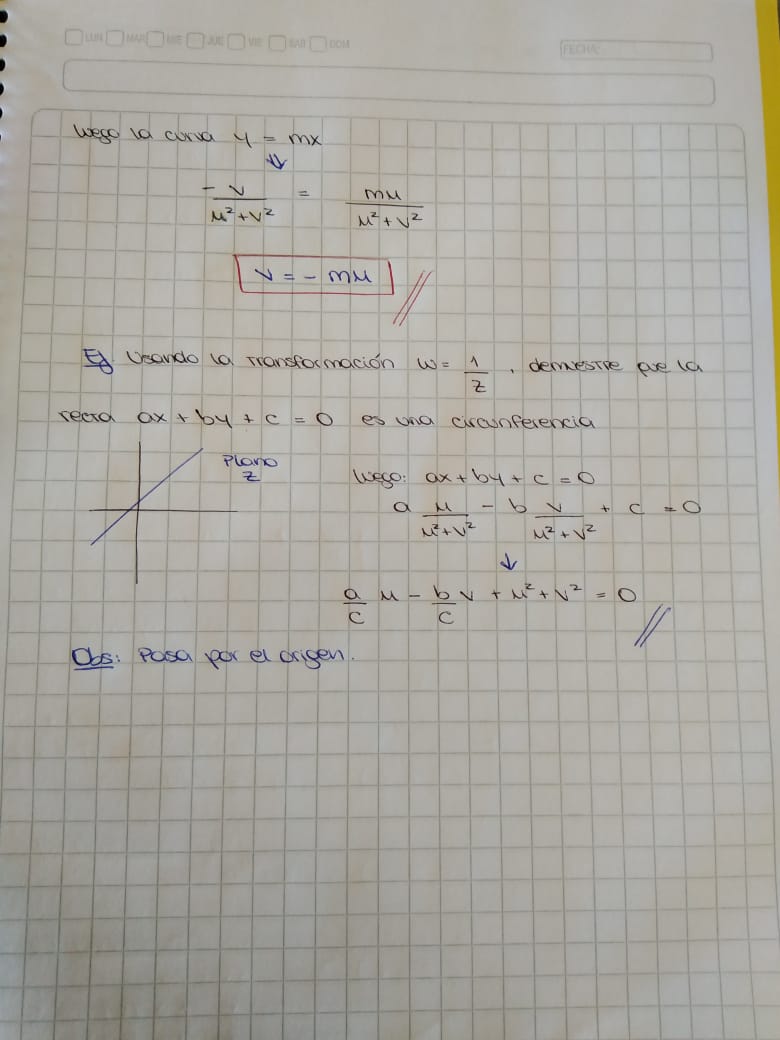 LUN MAR MIE JUE VIE SAB DOM
FECHA:
Luego la curva y = mx
⇓
-v/(u²+v²) = mu/(u²+v²)
v = - mu
Ej. Usando la transformación w = 1/z , demuestre que la
recta ax + by + c = 0 es una circunferencia
Plano
z
Luego: ax + by + c = 0
a u/(u²+v²) - b v/(u²+v²) + c = 0
↓
a/c u - b/c v + u² + v² = 0
Obs: Pasa por el origen.